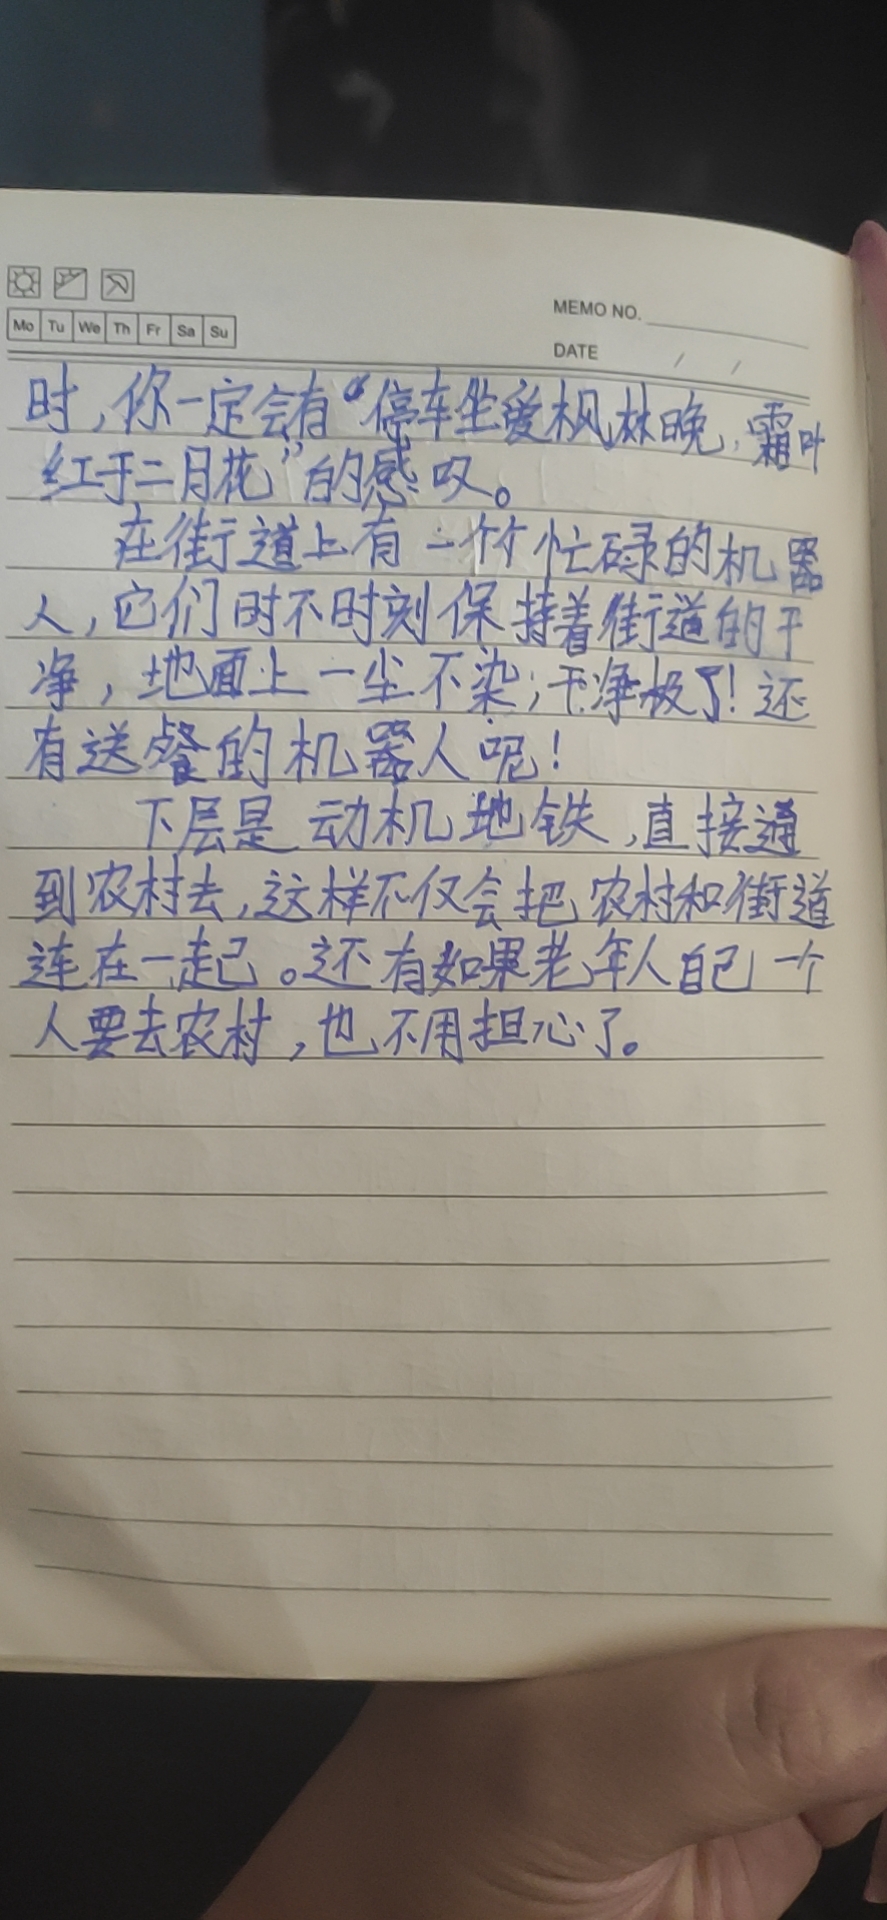 Mo Tu We Th Fr Sa Su
MEMO NO.
DATE / /
时，你一定会有“停车坐爱枫林晚，霜叶
红于二月花”的感叹。
在街道上有一个个忙碌的机器
人，它们时不时刻保持着街道的干
净，地面上一尘不染；干净极了！还
有送餐的机器人呢！
下层是动机地铁，直接通
到农村去，这样不仅会把农村和街道
连在一起。还有如果老年人自己一个
人要去农村，也不用担心了。